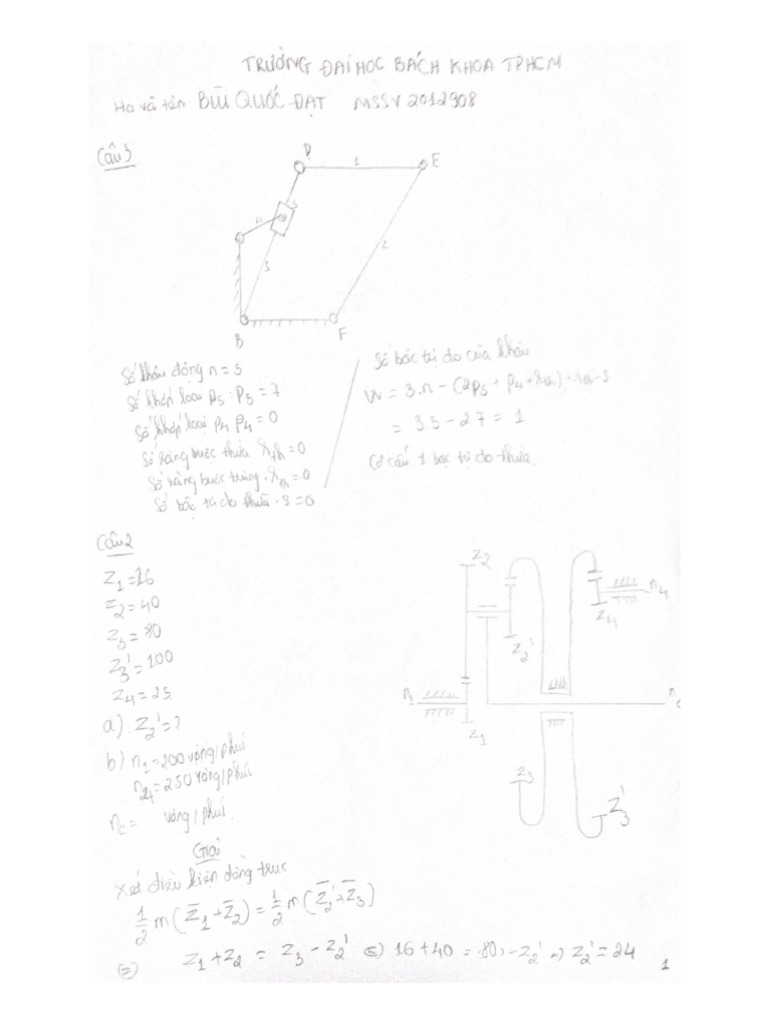 TRƯỜNG ĐẠI HỌC BÁCH KHOA TPHCM
Họ và tên BÙI QUỐC ĐẠT MSSV 2012908
Câu 3
D 1 E
4 5
C
2
3
B F
Số khâu động n = 5
Số khớp loại P5 : P5 = 7
Số khớp loại P4 P4 = 0
Số ràng buộc thừa Rth = 0
Số ràng buộc trùng . Rth = 0
Số bậc tự do thừa . S = 0
Số bậc tự do của khâu
W = 3.n - (2P5 + P4 + Rth) + Rth - S
= 3.5 - 2.7 = 1
Cơ cấu 1 bậc tự do thừa.
Câu 2
Z1 = 16
Z2 = 40
Z3 = 80
Z3' = 100
Z4 = 25
a) Z2' = ?
b) n1 = 200 vòng/phút
n4 = 250 vòng/phút
nc = vòng/phút.
Z2
n4
Z4
Z2'
n1 nc
Z1
Z3 Z3'
Giải
Xét điều kiện đồng trục
1/2 m (Z1 + Z2) = 1/2 m (Z2' + Z3)
(=) Z1 + Z2 = Z3 - Z2' (=) 16 + 40 = 80 - Z2' => Z2' = 24
1